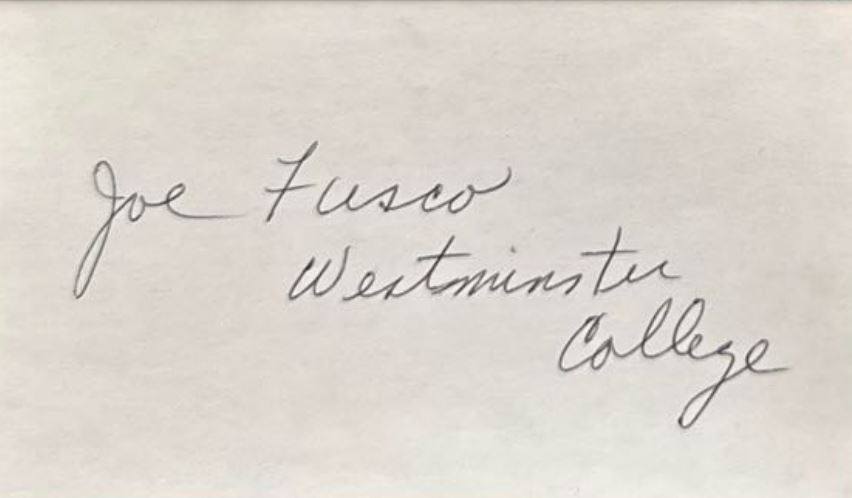 Joe Fusco
Westminster
College